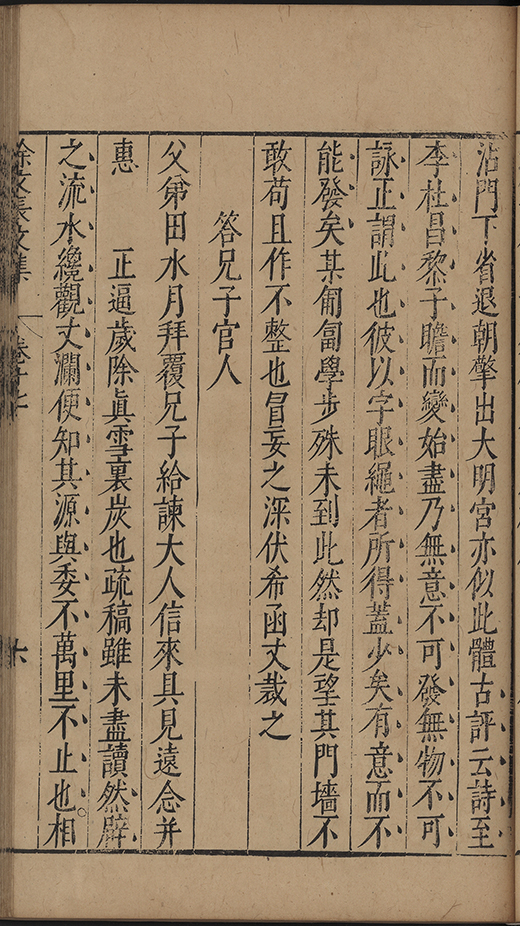 沾門下省退朝擎出大明宮亦似此體古評云詩至
李杜昌黎子瞻而變始盡乃無意不可發無物不可
詠正謂此也彼以字眼繩者所得蓋少矣有意而不
能發矣某匍匐學步殊未到此然却是望其門墻不
敢苟且作不整也冒妄之深伏希函丈裁之
答兄子官人
父弟田水月拜覆兄子給諫大人信來具見遠念并
惠　正逼歲除眞雪裏炭也疏稿雖未盡讀然辟
之流水纔觀丈瀾便知其源與委不萬里不止也相
徐文長文集　卷十七　十